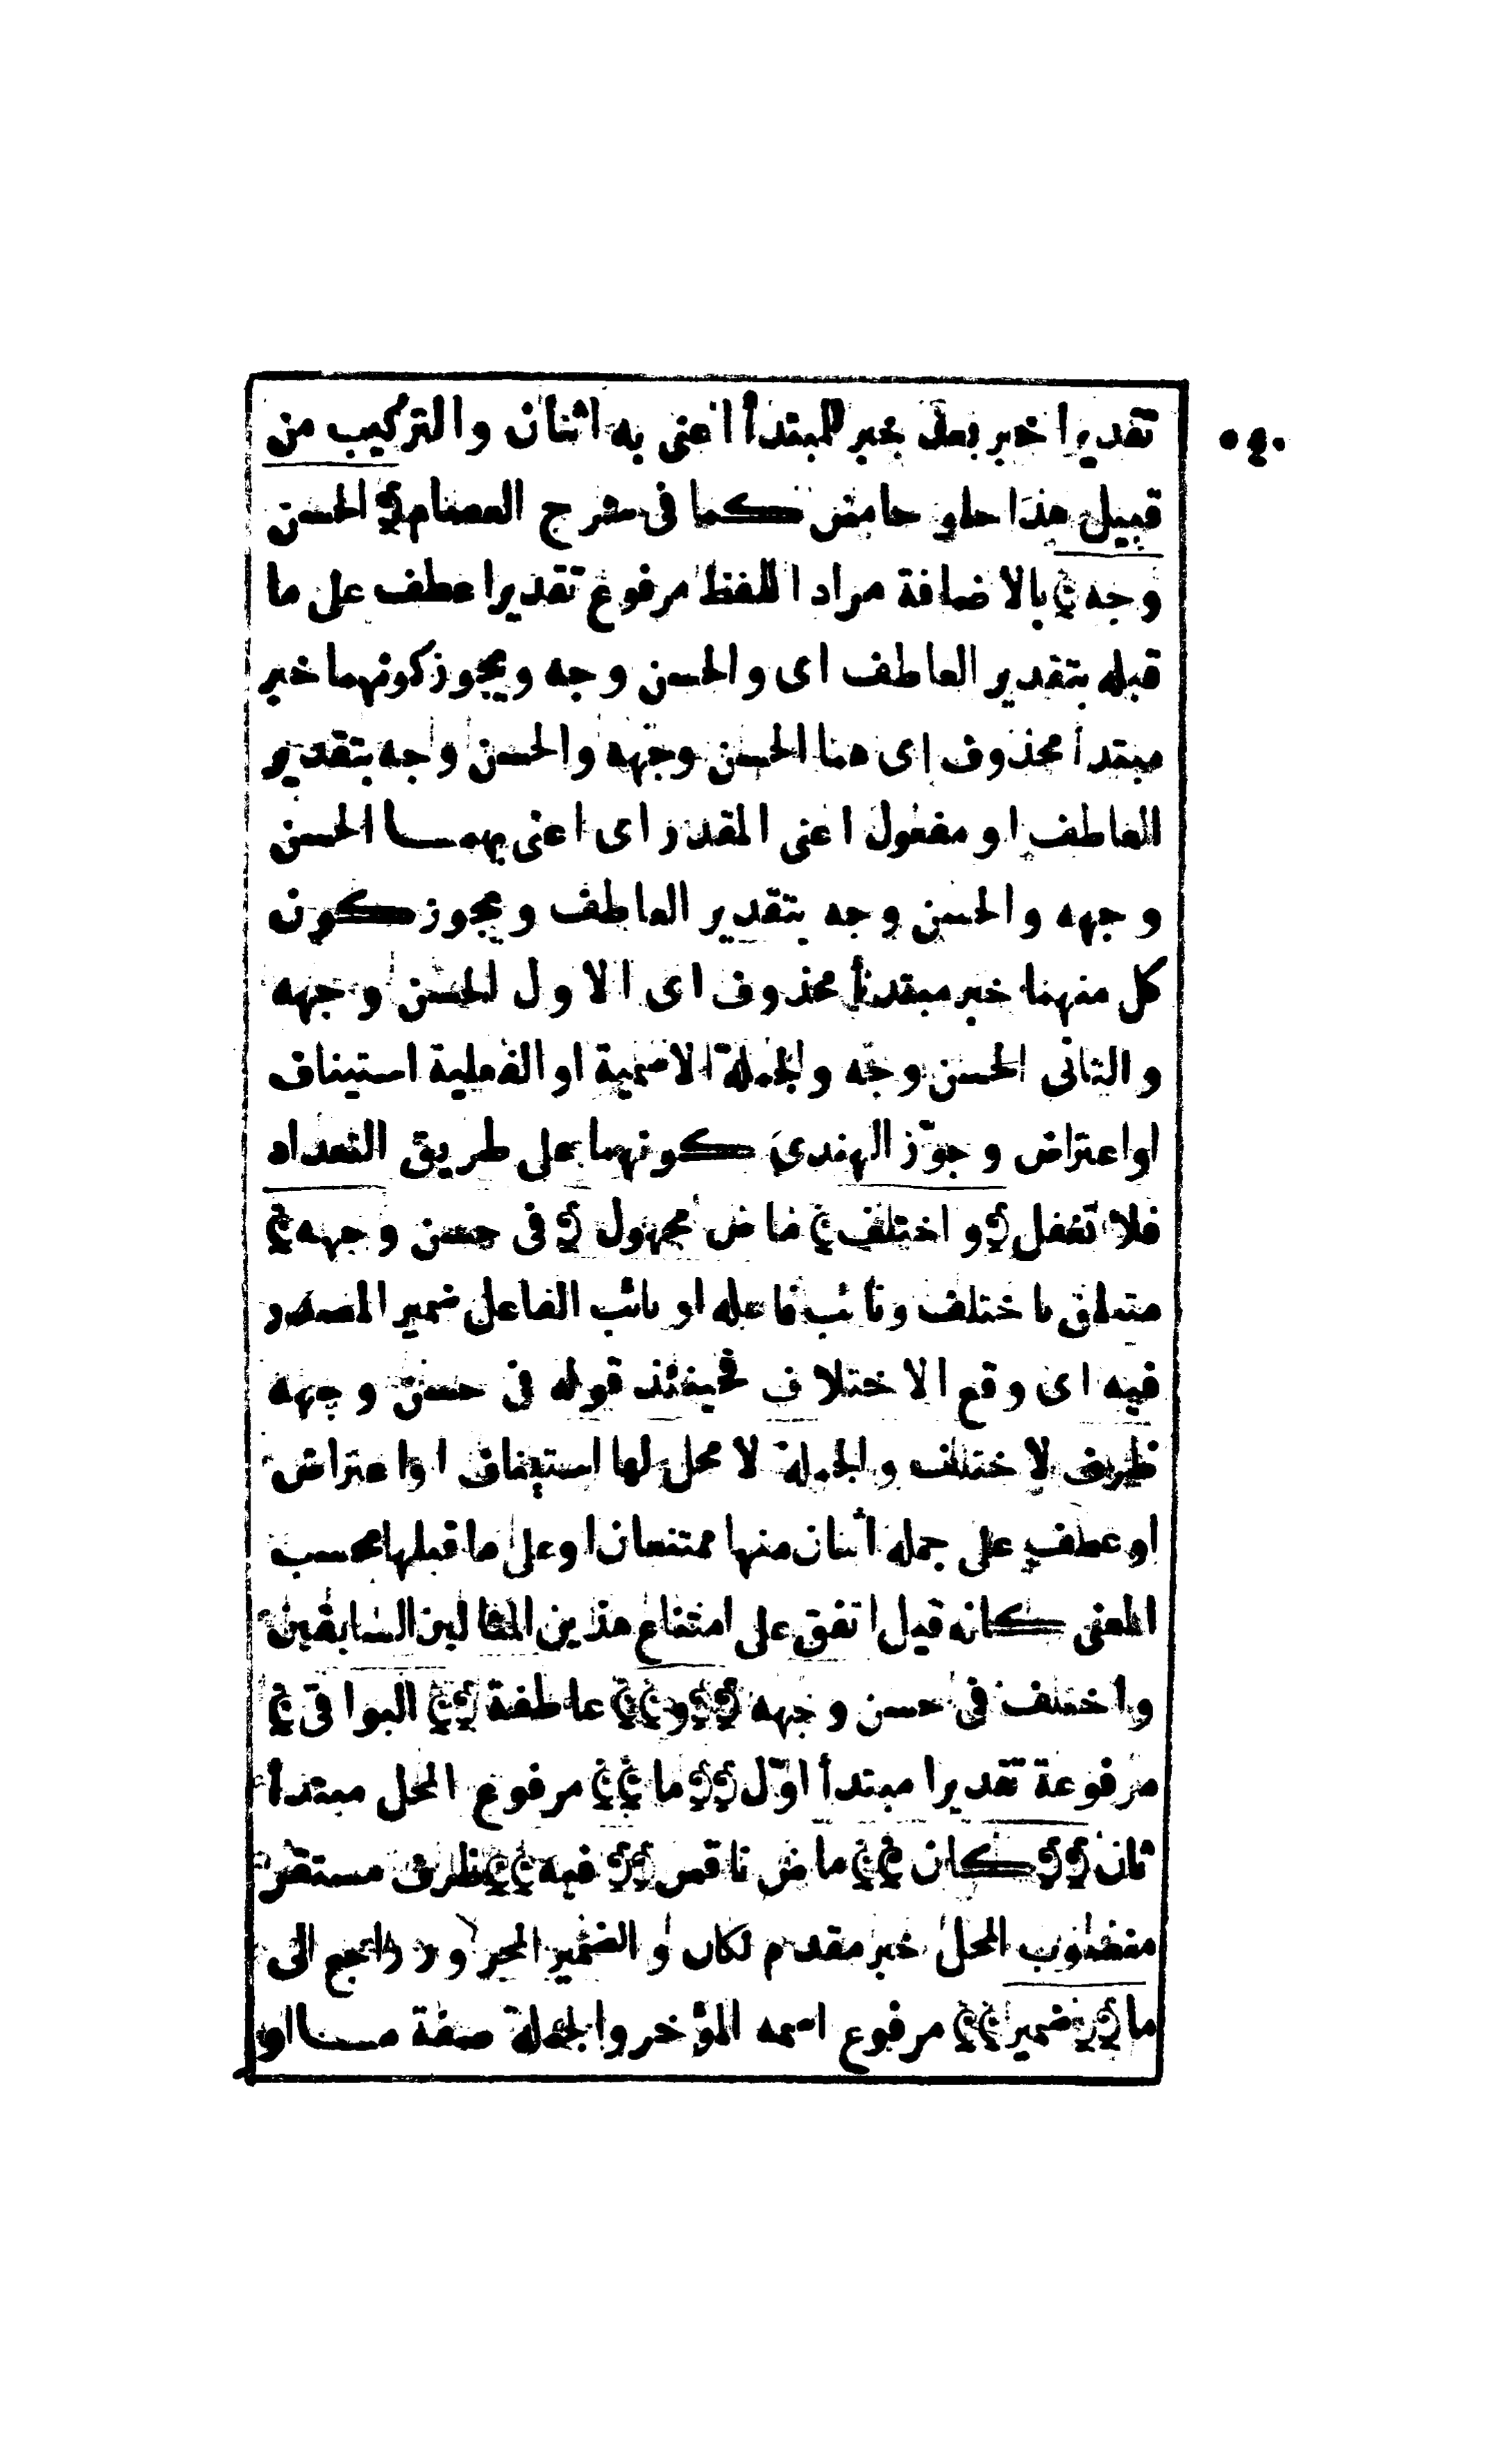 تقديرا خبر بعد خبر للمبتدأ اعنى به اثنان والتركيب من
قبيل هذا حلو حامض كما فى شرح العصام ﴿ الحسن
وجه ﴾ بالاضافة مراد اللفظ مرفوع تقديرا عطف على ما
قبله بتقدير العاطف اى والحسن وجه ويجوز كونهما خبر
مبتدأ محذوف اى هما الحسن وجهه والحسن وجه بتقدير
العاطف او مفعول اعنى المقدر اى اعنى بهما الحسن
وجهه والحسن وجه بتقدير العاطف ويجوز كون
كل منهما خبر مبتدأ محذوف اى الاول الحسن وجهه
والثانى الحسن وجه والجملة الاسمية او الفعلية استيناف
او اعتراض وجوّز الهندى كونهما على طريق التعداد
فلا تغفل ﴿ و اختلف ﴾ ماض مجهول ﴿ فى حسن وجهه ﴾
متعلق باختلف ونائب فاعله او نائب الفاعل ضمير المصدر
فيه اى وقع الاختلاف فحينئذ قوله فى حسن وجهه
ظرف لاختلف والجملة لا محل لها استيناف او اعتراض
او عطف على جملة اثنان منها ممتنعان او على ما قبلها بحسب
المعنى كانه قيل اتفق على امتناع هذين المثالين السابقين
واختلف فى حسن وجهه ﴿﴿ و ﴾﴾ عاطفة ﴿﴿ البواقى ﴾
مرفوعة تقديرا مبتدأ اوّل ﴿﴿ ما ﴾﴾ مرفوع المحل مبتدأ
ثان ﴿﴿ كان ﴾﴾ ماض ناقص ﴿﴿ فيه ﴾﴾ ظرف مستقر
منصوب المحل خبر مقدم لكان والضمير المجرور راجع الى
ما ﴿﴿ ضمير ﴾﴾ مرفوع اسمه المؤخر والجملة صفة ما او